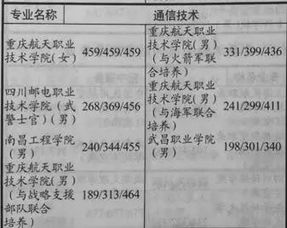 专业名称
通信技术
重庆航天职业
技术学院(女)
459/459/459
四川邮电职业
技术学院(武
警士官)(男)
268/369/456
南昌工程学院
(男)
240/344/455
重庆航天职业
技术学院(男)
(与战略支援
部队联合
培养)
189/313/464
重庆航天职业
技术学院(男)
(与火箭军联
合培养)
331/399/436
重庆航天职业
技术学院(男)
(与海军联合
培养)
241/299/411
武昌职业学院
(男)
198/301/340